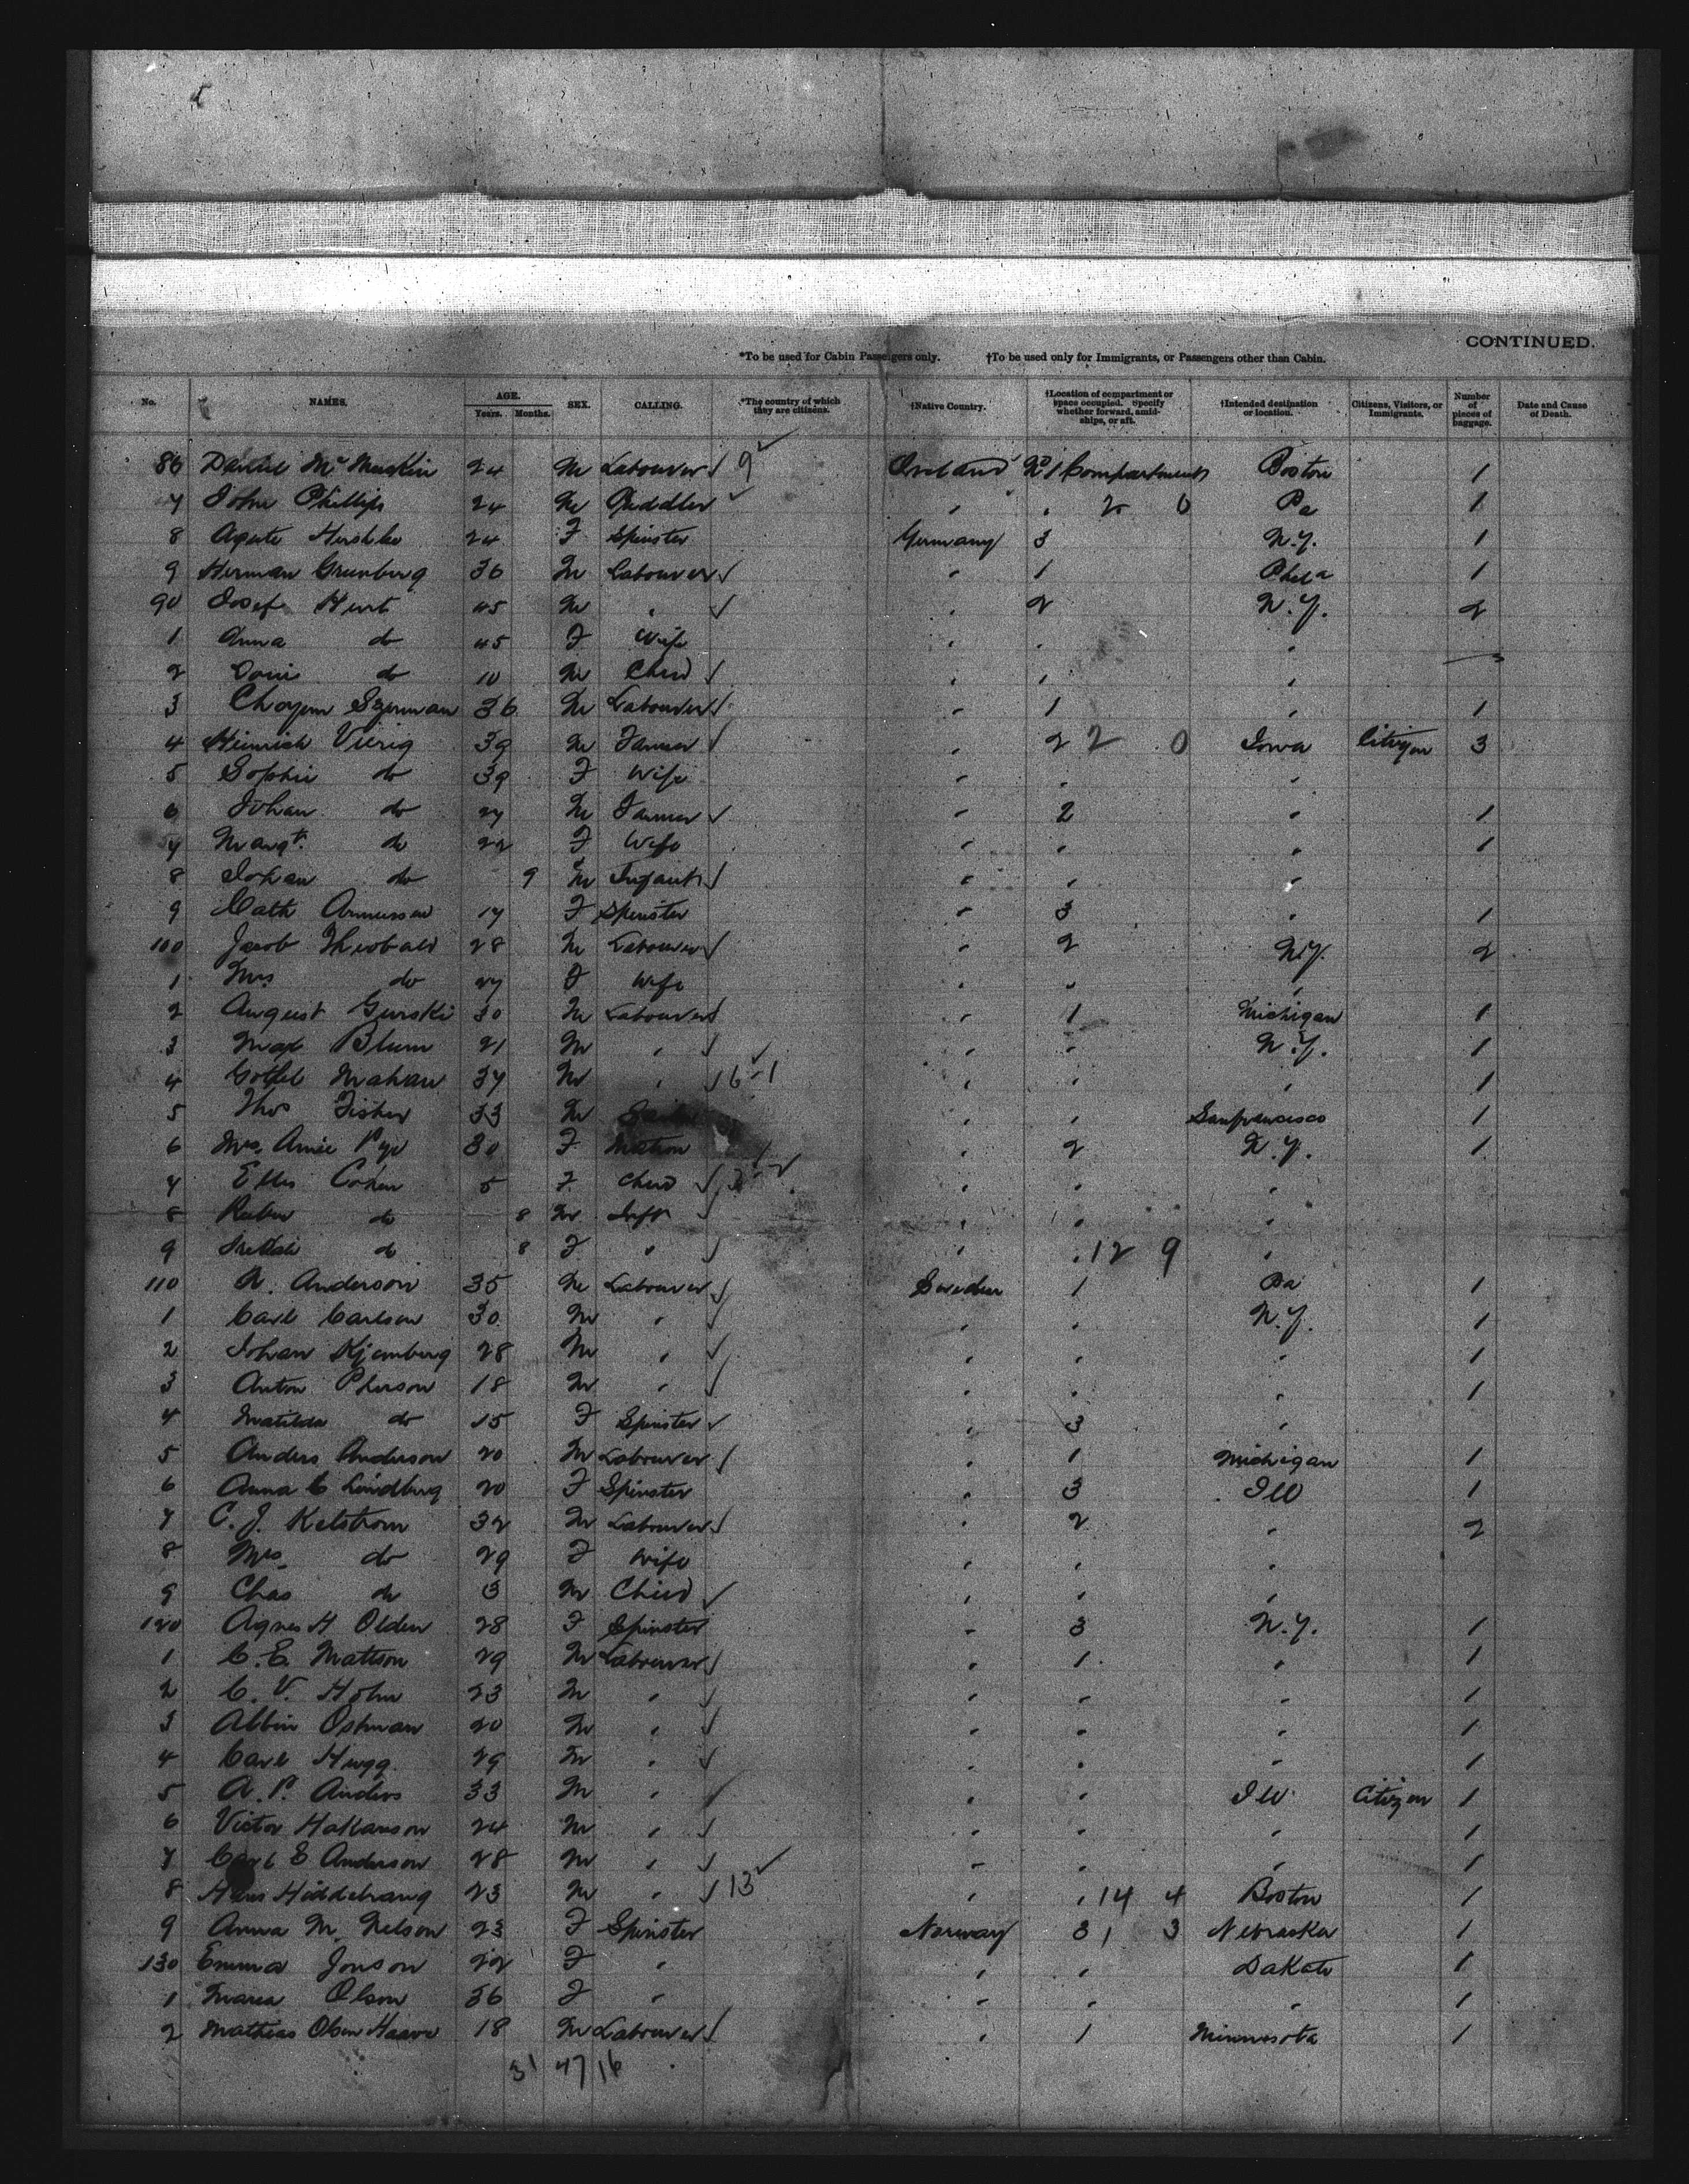 CONTINUED.
*To be used for Cabin Passengers only. †To be used only for Immigrants, or Passengers other than Cabin.
No. NAMES. AGE. Years. Months. SEX. CALLING. *The country of which they are citizens. †Native Country. †Location of compartment or space occupied. Specify whether forward, amidships, or aft. †Intended destination or location. Citizens, Visitors, or Immigrants. Number of pieces of baggage. Date and Cause of Death.
86 24 M Labourer 9 Ireland No 1 Compartment Boston 1
7 John Phillips 24 M Peddler " " 2 0 Pa 1
8 24 F Spinster Germany 3 N.Y. 1
9 Herman Grunberg 36 M Labourer " 1 Phila 1
90 Josef 45 M " " 2 N.Y. 2
1 Anna do 45 F Wife " " "
2 do 10 M Child " " "
3 36 M Labourer " 1 " 1
4 Heinrich Vierig 39 M Farmer " 2 2 0 Iowa Citizen 3
5 Sophie do 39 F Wife " " "
6 Johan do 27 M Farmer " 2 " 1
7 Margt. do 22 F Wife " " " 1
8 Johan do 9 M Infant " " "
9 Cath 17 F Spinster " 3 " 1
100 Jacob Theobald 28 M Labourer " 2 N.Y. 2
1 Mrs do 27 F Wife " " "
2 August Gurski 30 M Labourer " 1 Michigan 1
3 Max Blum 21 M " " " N.Y. 1
4 37 M " 6-1 " " " 1
5 Thos Fisher 33 M " " Sanfrancisco 1
6 Mrs. Pye 30 F Matron " 2 N.Y. 1
7 Cohen 5 F Child " " "
8 Ruben do 8 M Inft " " "
9 do 8 F " " " 12 9 "
110 A. Anderson 35 M Labourer Sweden 1 Pa 1
1 Carl Carlson 30 M " " " N.Y. 1
2 Johan Kjemberg 28 M " " " " 1
3 Anton Pherson 18 M " " " " 1
4 Matilda do 15 F Spinster " 3 "
5 Anders Anderson 20 M Labourer " 1 Michigan 1
6 Anna C Lindberg 20 F Spinster " 3 Ill 1
7 C. J. Kelstrom 32 M Labourer " 2 " 2
8 Mrs do 29 F Wife " " "
9 Chas do 3 M Child " " "
120 Agnes H Olden 28 F Spinster " 3 N.Y. 1
1 C. E. Mattson 29 M Labourer " 1 " 1
2 C. V. Holm 23 M " " " " 1
3 Albin Ostman 20 M " " " " 1
4 Carl Hugg 29 M " " " " 1
5 A. P. Anders 33 M " " " Ill Citizen 1
6 Victor Hakanson 24 M " " " " 1
7 Carl E Anderson 28 M " " " " 1
8 23 M " 13 " " 14 4 Boston 1
9 Anna M. Nelson 23 F Spinster Norway 3 1 3 Nebraska 1
130 Emma Jonson 22 F " " " Dakota 1
1 Maren Olson 36 F " " " " 1
2 Mathias Olsen Haave 18 M Labourer " 1 Minnesota 1
31 47 16